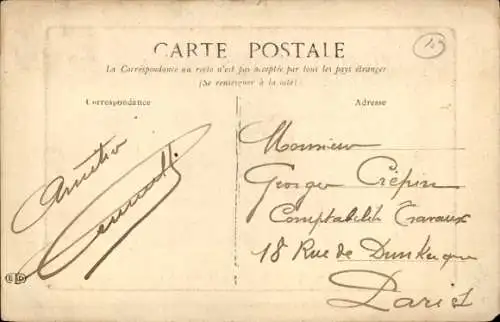 CARTE POSTALE
La Correspondance au recto n'est pas acceptée par tous les pays étranger
(Se renseigner à la side)
Correspondance
Adresse
Monsieur
Georges Crépin
Comptabilité Travaux
18 Rue de Dunkerque
Paris
Amitié
ED